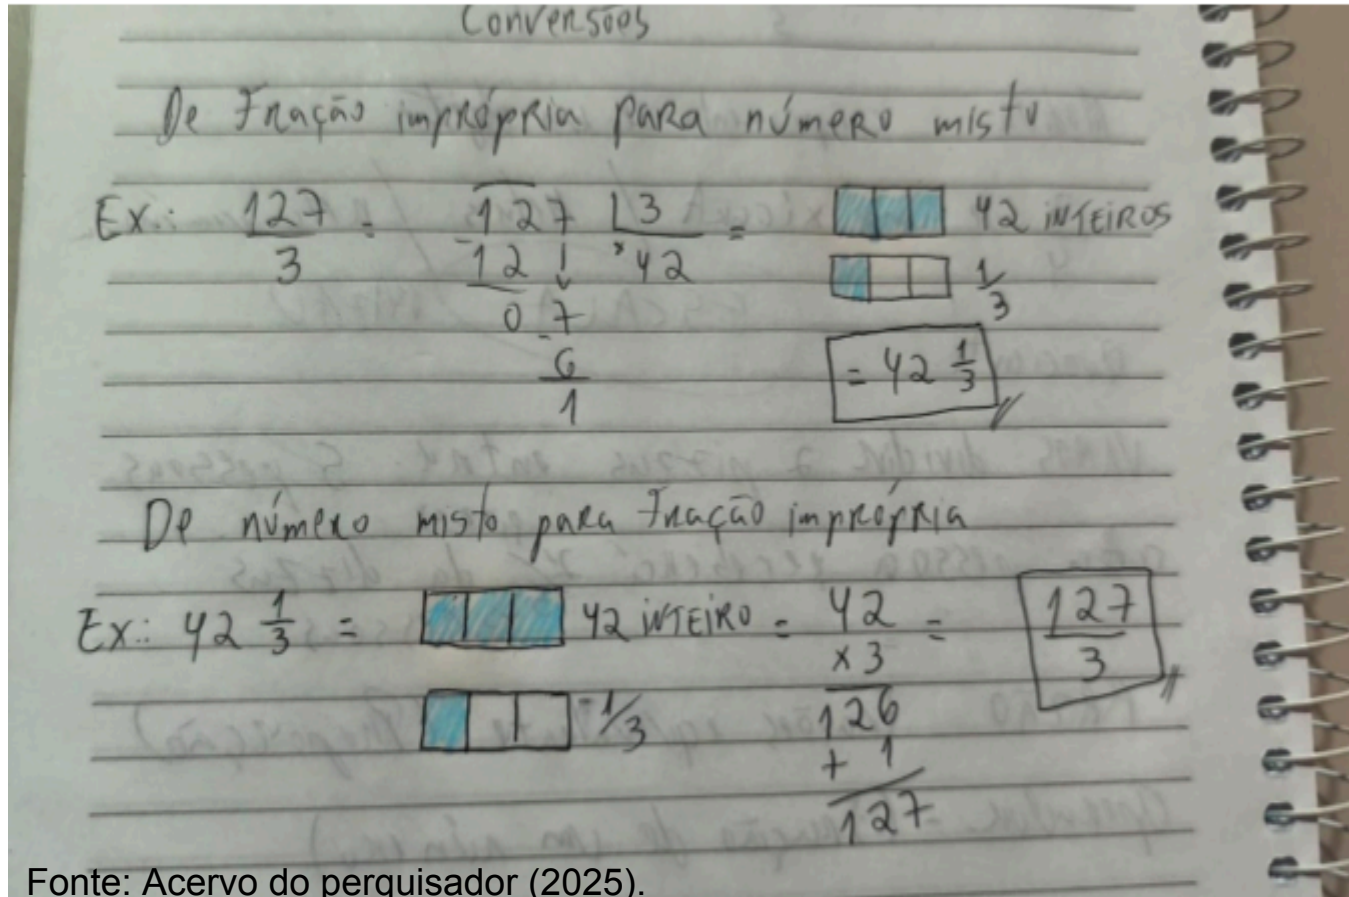 Conversões
De Fração imprópria para número misto
Ex.: 127/3 = 127 | 3 = 42 INTEIROS
-12 42 1/3
07
-6 = 42 1/3
1
De número misto para Fração imprópria
Ex.: 42 1/3 = 42 INTEIRO = 42 = 127/3
x 3
= 1/3 126
+ 1
127
Fonte: Acervo do perquisador (2025).